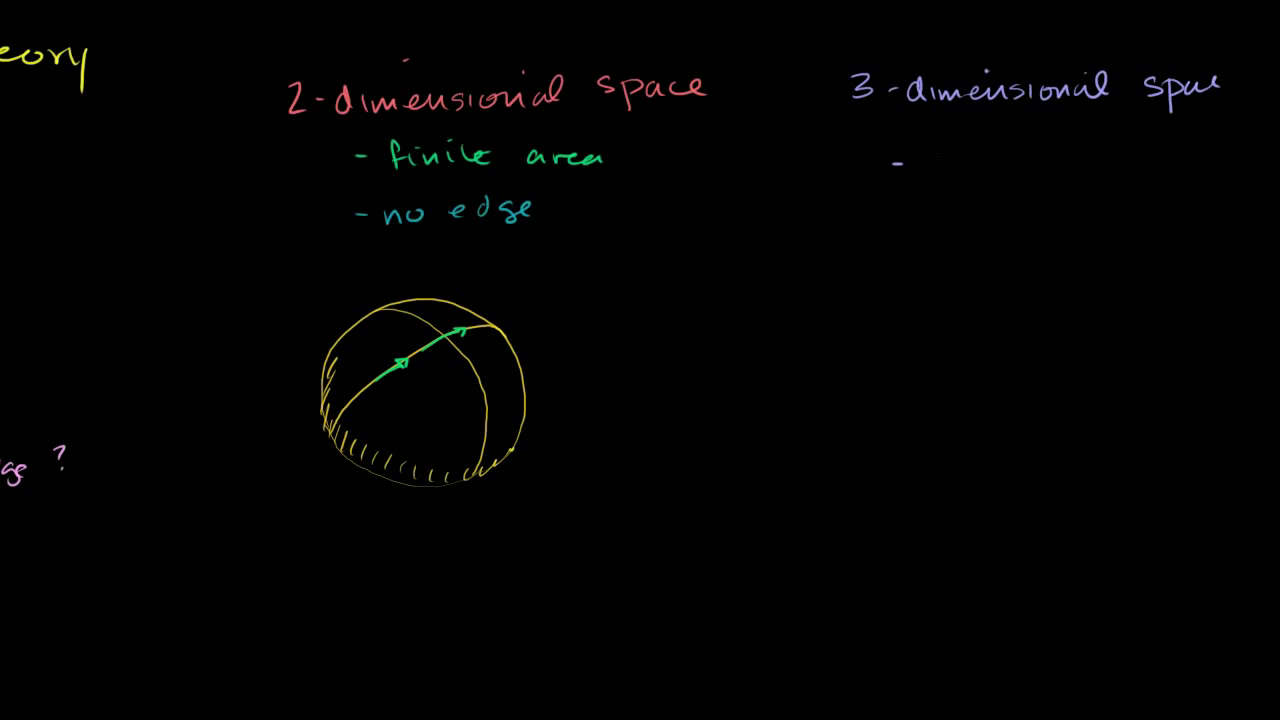 eory
2-dimensional space
- finite area
- no edge
3-dimensional space
-
ge ?